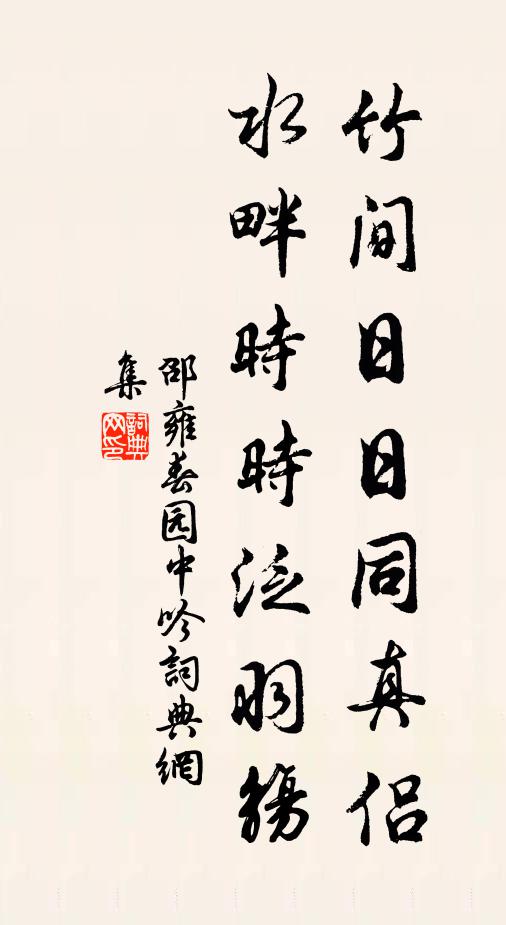 竹间日日同真侣
水畔時時泛羽觴
邵雍春园中吟詞典網
集
詞典网印